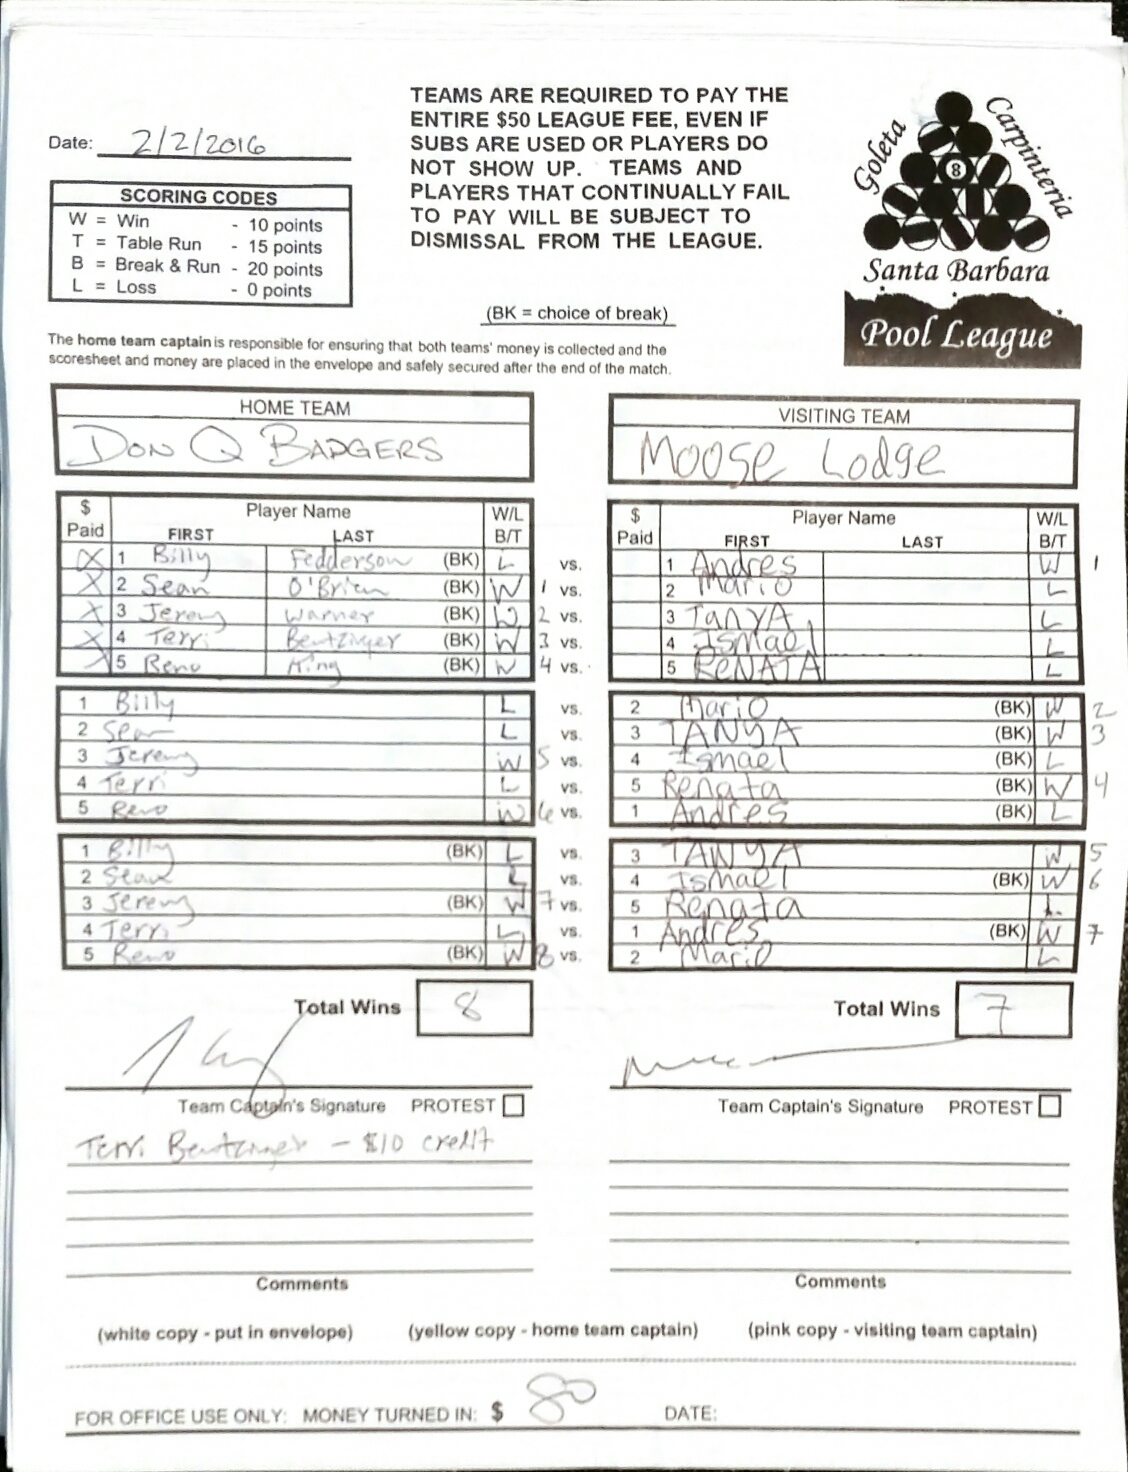 TEAMS ARE REQUIRED TO PAY THE
ENTIRE $50 LEAGUE FEE, EVEN IF
SUBS ARE USED OR PLAYERS DO
NOT SHOW UP. TEAMS AND
PLAYERS THAT CONTINUALLY FAIL
TO PAY WILL BE SUBJECT TO
DISMISSAL FROM THE LEAGUE.
Goleta
Carpinteria
8
Santa Barbara
Pool League
Date: 2/2/2016
SCORING CODES
W = Win - 10 points
T = Table Run - 15 points
B = Break & Run - 20 points
L = Loss - 0 points
(BK = choice of break)
The home team captain is responsible for ensuring that both teams' money is collected and the
scoresheet and money are placed in the envelope and safely secured after the end of the match.
HOME TEAM
DON Q BADGERS
VISITING TEAM
Moose Lodge
$ Paid Player Name FIRST LAST W/L B/T
$ Paid Player Name FIRST LAST W/L B/T
X 1 Billy Fedderson (BK) L vs. 1 Andres W 1
X 2 Sean O'Brien (BK) W 1 vs. 2 Mario L
X 3 Jeremy Warner (BK) W 2 vs. 3 TANYA L
X 4 Terri Bentzinger (BK) W 3 vs. 4 Ismael L
X 5 Reno King (BK) W 4 vs. 5 RENATA L
1 Billy L vs. 2 Mario (BK) W 2
2 Sean L vs. 3 TANYA (BK) W 3
3 Jeremy W 5 vs. 4 Ismael (BK) L
4 Terri L vs. 5 Renata (BK) W 4
5 Reno W 6 vs. 1 Andres (BK) L
1 Billy (BK) L vs. 3 TANYA W 5
2 Sean L vs. 4 Ismael (BK) W 6
3 Jeremy (BK) W 7 vs. 5 Renata L
4 Terri L vs. 1 Andres (BK) W 7
5 Reno (BK) W 8 vs. 2 Mario L
Total Wins 8
Total Wins 7
Team Captain's Signature PROTEST
Team Captain's Signature PROTEST
Terri Bentzinger - $10 credit
Comments
Comments
(white copy - put in envelope) (yellow copy - home team captain) (pink copy - visiting team captain)
FOR OFFICE USE ONLY: MONEY TURNED IN: $ 80 DATE: